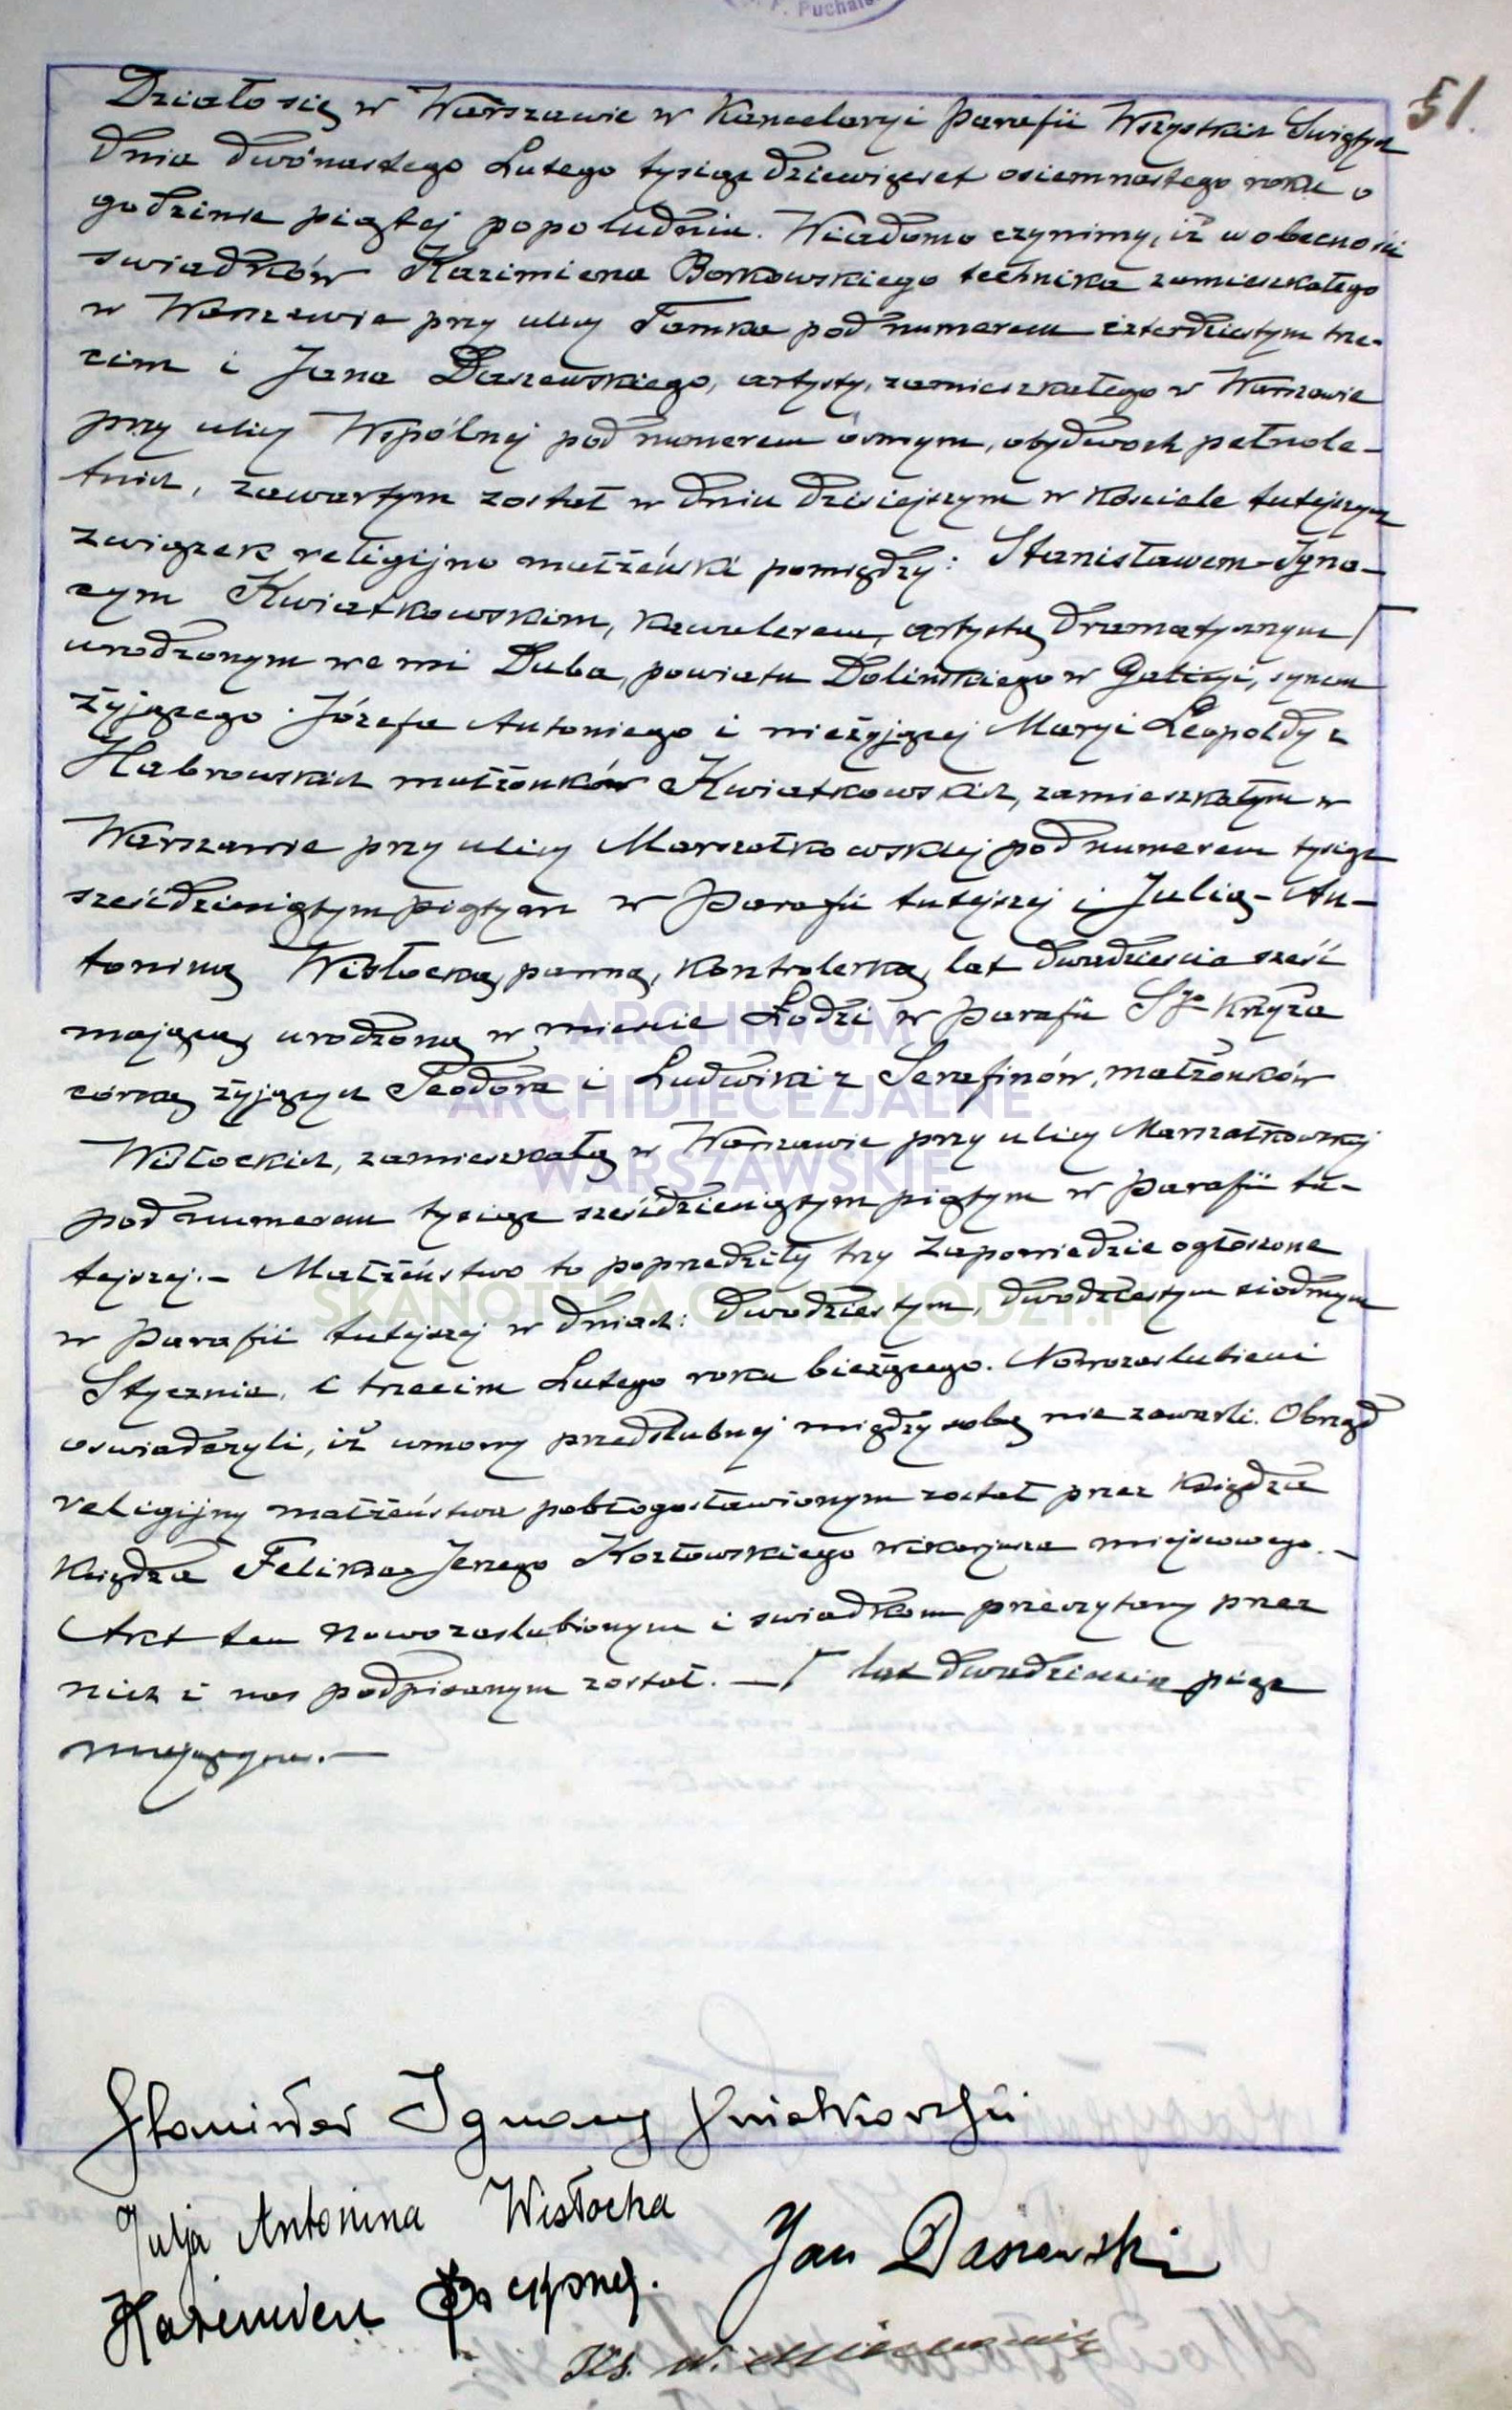 F. Puchal
51.
Działo się w Warszawie w Kancelaryi Parafii Wszystkich Świętych
dnia dwónastego Lutego tysiąc dziewięćset osiemnastego roku o
godzinie piątej popołudniu. Wiadomo czynimy, iż w obecności
swiadków Kazimierza Borkowskiego technika zamieszkałego
w Warszawie przy ulicy Tamka pod numerem czterdziestym trze-
cim i Jana Daszewskiego, artysty, zamieszkałego w Warszawie
przy ulicy Wspólnej pod numerem ósmym, obydwóch pełnole-
tnich, zawartym został w dniu dzisiejszym w Kościele tutejszym
związek religijno małżeński pomiędzy: Stanisławem-Igna-
cym Kwiatkowskim, kawalerem, artystą dramatycznym Γ
urodzonym we wsi Duba, powiatu Dolińskiego w Galicyi, synem
żyjącego Józefa Antoniego i nieżyjącej Maryi Leopoldy z
Habrowskich małżonków Kwiatkowskich, zamieszkałym w
Warszawie przy ulicy Marszałkowskiej pod numerem tysiąc
sześćdziesiątym piątym w Parafii tutejszej i Julią-An-
toniną Wisłocką, panną, kontrolerką, lat dwadzieścia sześć
mającą, urodzoną w mieście Łodzi w Parafii Sgo Krzyża
córką żyjących Teodora i Ludwiki z Serafinów, małżonków
Wisłockich, zamieszkałą w Warszawie przy ulicy Marszałkowskiej
pod numerem tysiąc sześćdziesiątym piątym w Parafii tu-
tejszej.- Małżeństwo to poprzedziły trzy Zapowiedzie ogłoszone
w Parafii tutejszej w dniach: dwudziestym, dwudziestym siódmym
Stycznia, i trzecim Lutego roku bieżącego. Nowozaslubieni
oswiadczyli, iż umowy przedslubnej między sobą nie zawarli. Obrząd
religijny małżeństwa pobłogosławionym został przez Księdza
Księdza Feliksa Jerzego Kozłowskiego wikarjusza miejscowego.-
Akt ten Nowozaslubionym i swiadkom przeczytany przez
nich i nas podpisanym został. — Γ lat dwadzieścia pięć
mającym.—
ARCHIWUM
ARCHIDIECEZJALNE
WARSZAWSKIE
SKANOTEKA.GENEALODZY.PL
Stanisław Ignacy Kwiatkowski
Julja Antonina Wisłocka
Jan Daszewski
Kazimierz
Ks. W.